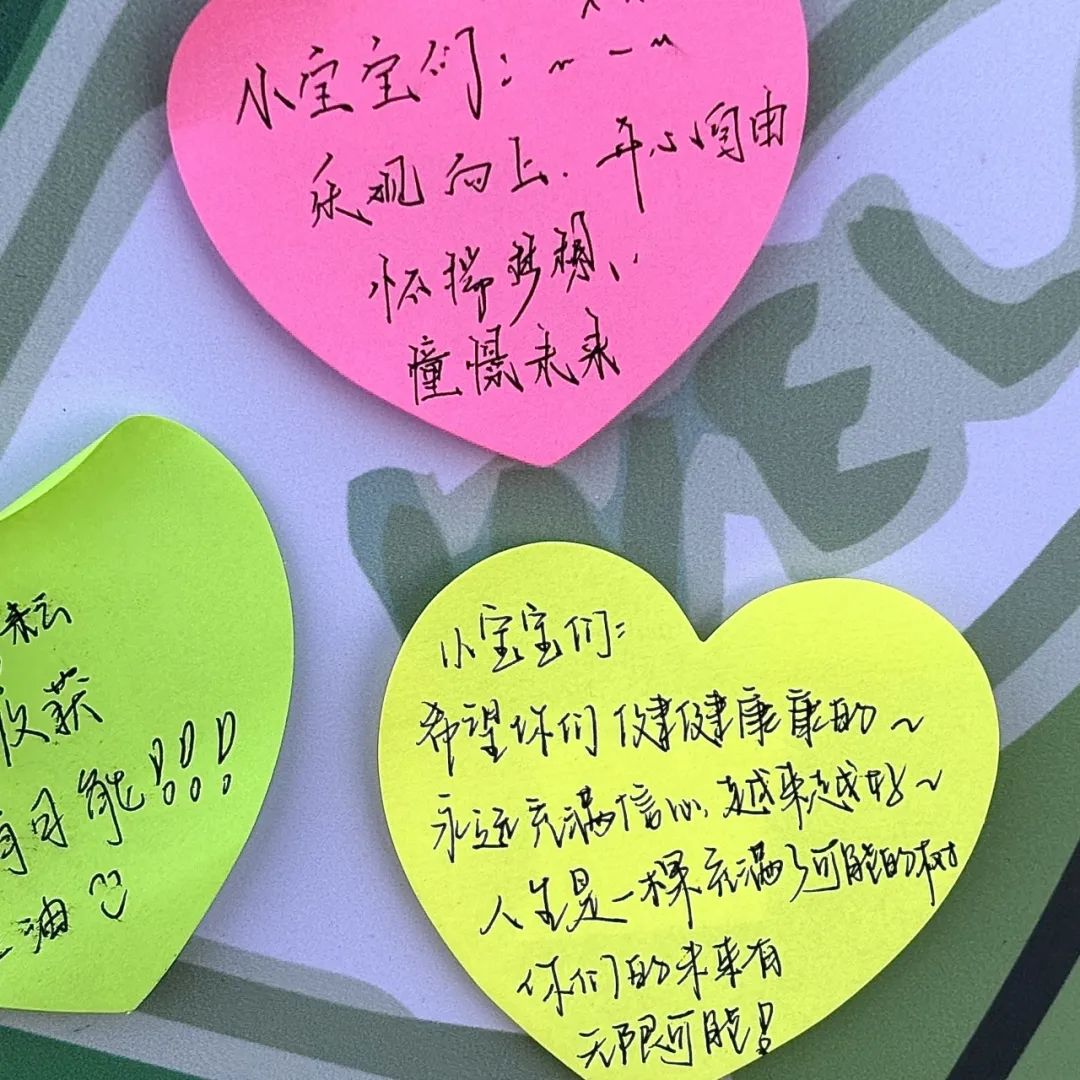 小宝宝们：
乐观向上．开心自由
怀揣梦想、
憧憬未来
耘
收获
有可能!!!
油
小宝宝们：
希望你们健健康康的～
永远充满信心，越来越好～
人生是一棵充满了可能的树
你们的未来有
无限可能！